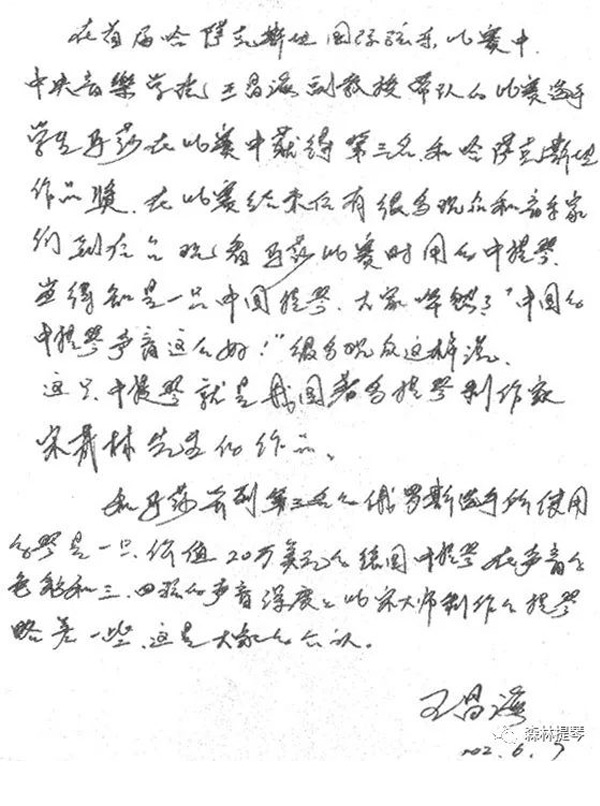 在首届哈萨克斯坦国际弦乐比赛中,
中央音樂学院王昌海副教授带队的比赛选手
学生马莎在比赛中获得第三名和哈萨克斯坦
作品獎.在比赛结束后有很多观众和音乐家
们到后台观看马莎比赛时用的中提琴.
当得知是一只中国提琴.大家惊讶了"中国的
中提琴声音这么好!"很多观众这样说.
这只中提琴就是我国著名提琴制作家
宋森林先生的作品。
和马莎并列第三名的俄罗斯选手所使用
的琴是一只价值20万美元的德国中提琴在声音的
色彩和三.四弦的声音深度上比宋大师制作的提琴
略差一些.这是大家的公认。
王昌海
森林提琴
202.6.7